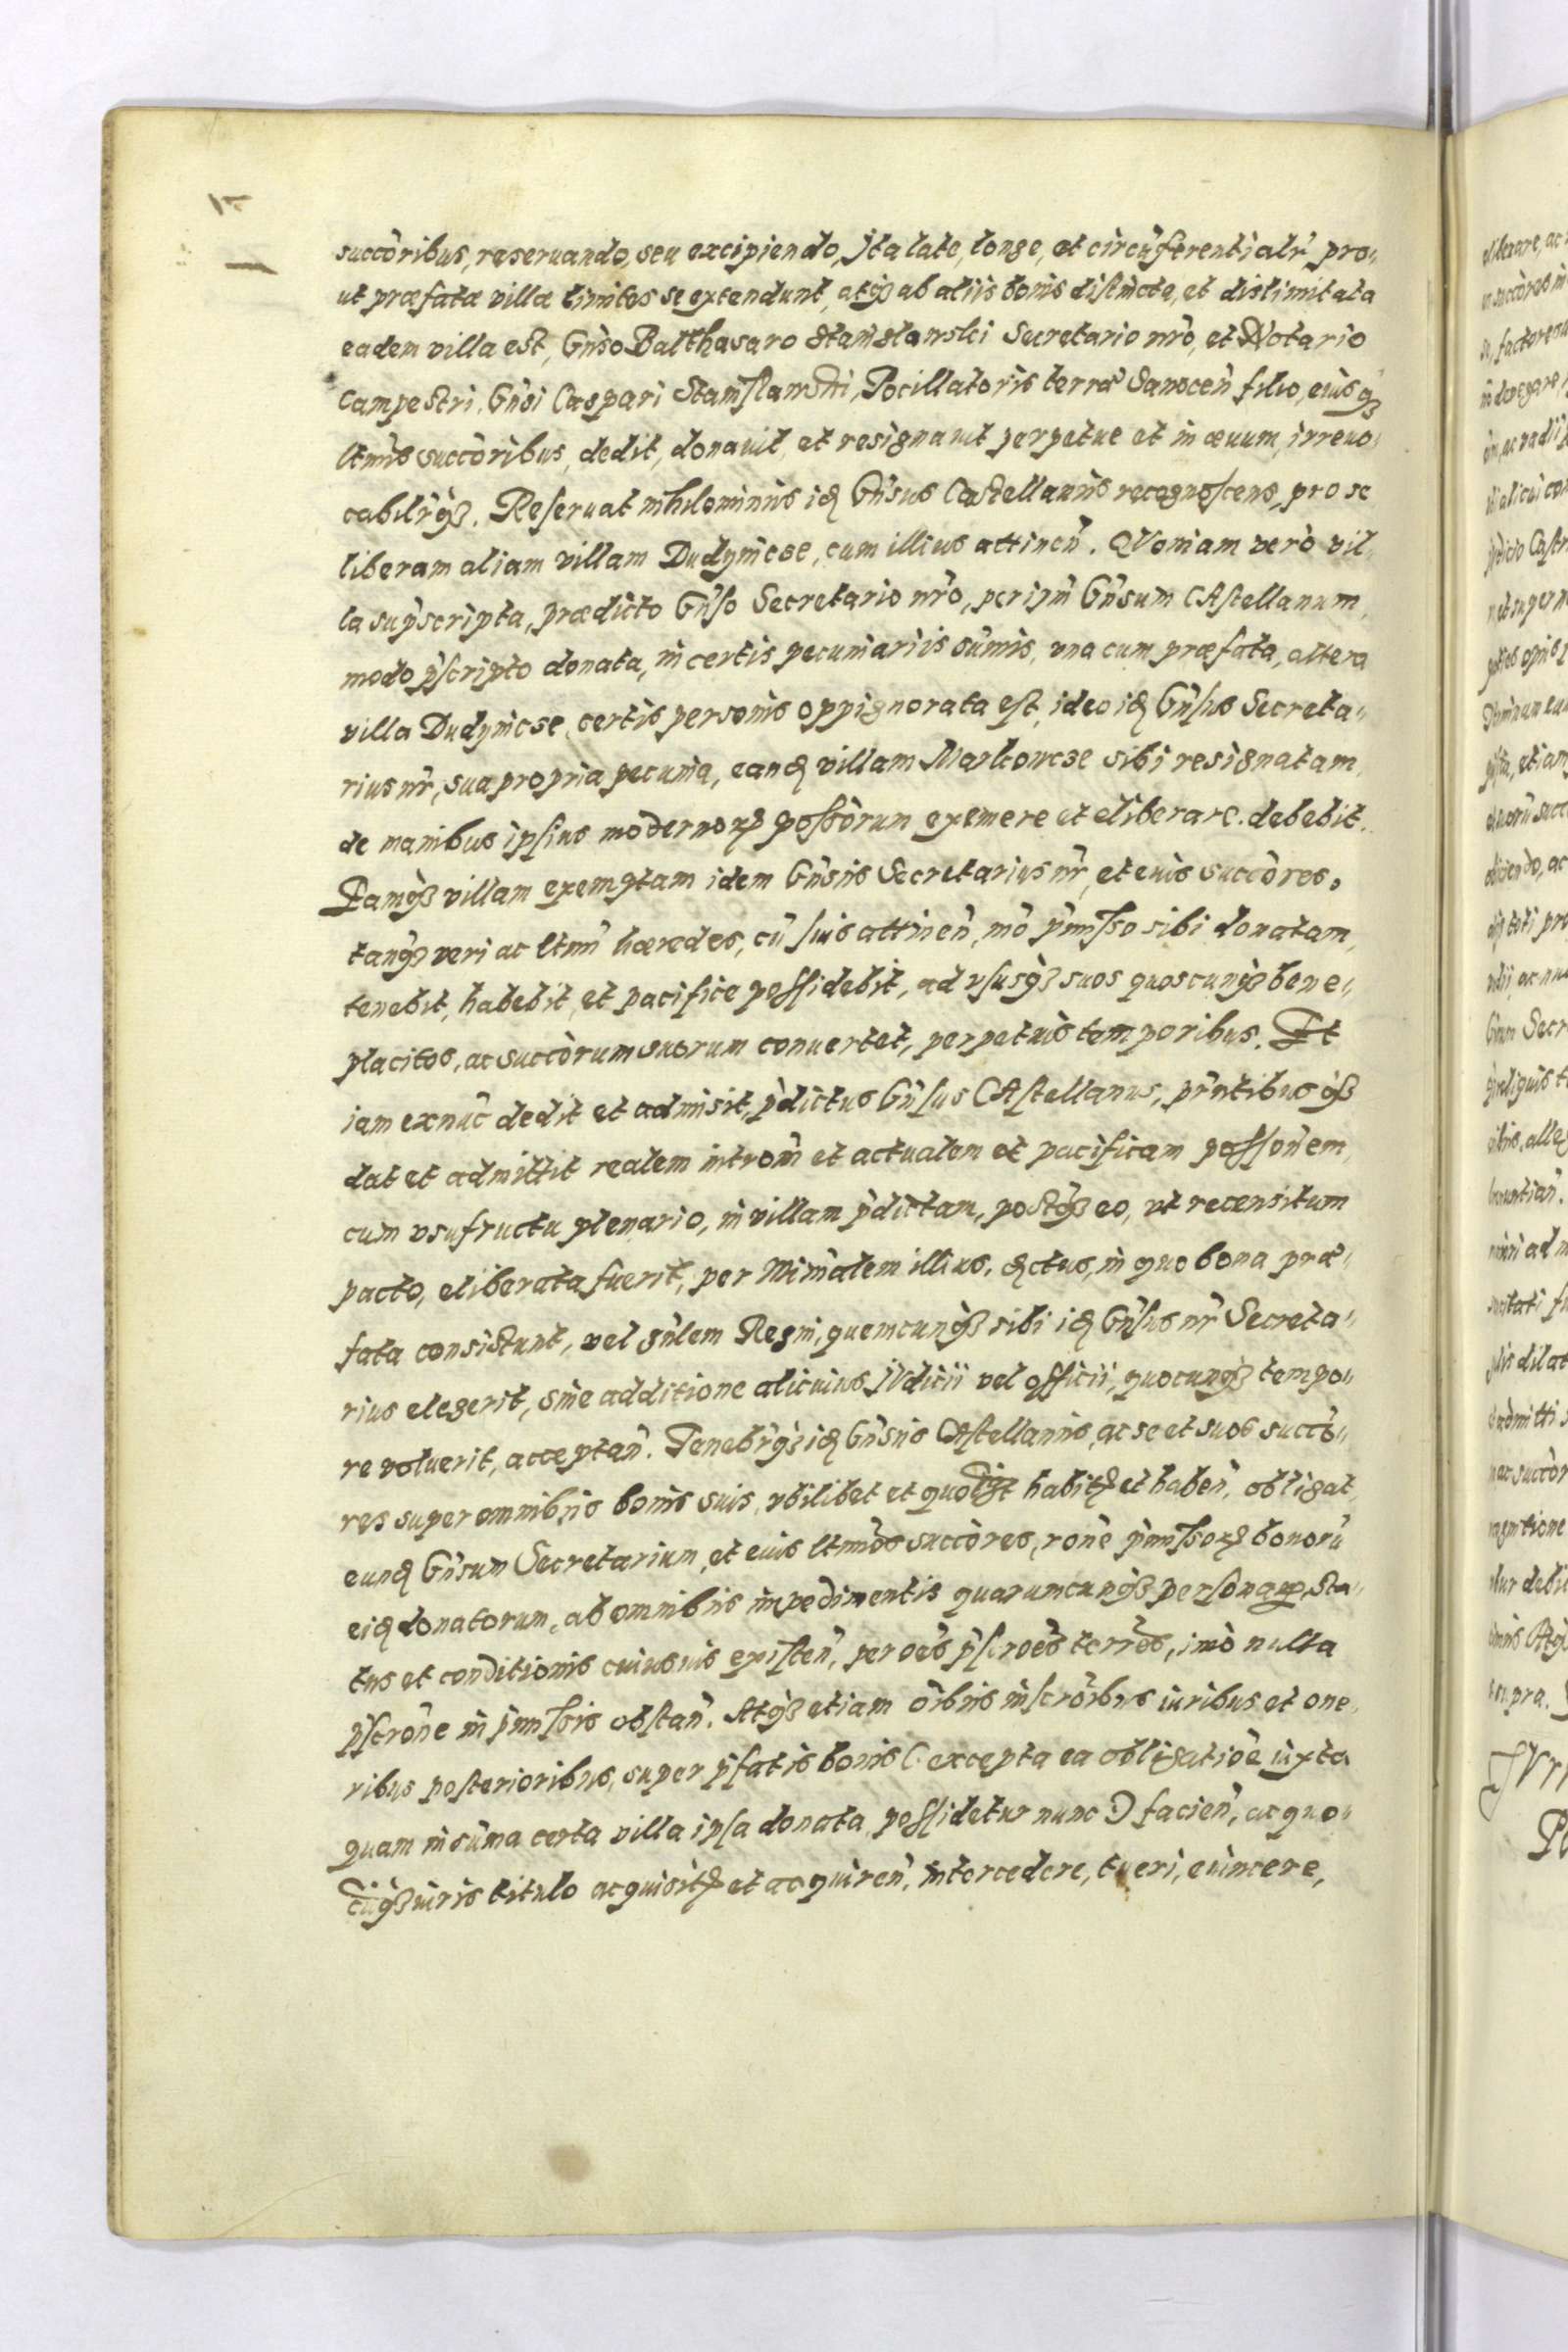 succòribus, reseruando, seu excipiendo, Jta late, longe, et circũferentialr̃, pro„
ut præfatæ villæ limites se extendunt, atq̃ ab aliis bonis distincta, et dislimitata
eadem villa est, Gñso Balthasaro Stanislawski Secretario nr̃o, et Notario
Campestri, Gñsi Caspari Stanislawski, Pocillatoris terræ Sanoceñ filio, eiusq̃
ltm̃is succòribus, dedit, donauit, et resignauit perpetue et in æuum, irreuo„
cabilr̃q̃. Reseruat nihilominus idẽ Gñsus Castellanus recognoscens, pro se
liberam aliam villam Dudyńcse, cum illius attineñ. QVoniam verò vil„
la sup̃scripta, prædicto Gñso Secretario nr̃o, per ipm̃ Gñsum CAstellanum,
modo p̃scripto donata, in certis pecuniariis sum̃is, vna cum præfata, altera
villa Dudyńcse, certis personis oppignorata est, ideo idẽ Gñsus Secreta„
rius nr̃, sua propria pecunia, eandẽ villam Markowcse sibi resignatam,
de manibus ipsius modernorũ possòrum eximere et eliberare debebit.
Eamq̃ villam exemptam idem Gñsus Secretarius nr̃, et eius succòres,
tanq̃ veri ac ltm̃i hæredes, cũ suis attineñ, mõ p̃misso sibi donatam,
tenebit, habebit, et pacifice possidebit, ad vsusq̃ suos quoscunq̃ bene„
placitos, ac succòrum suorum conuertet, perpetuis temporibus. Et
iam exnũc dedit et admisit, p̃dictus Gñsus CAstellanus, pñtibusq̃
dat et admittit realem introm̃ et actualem et pacificam possoñem,
cum vsufructu plenario, in villam p̃dictam, postq̃ eo, vt recensitum
pacto, eliberata fuerit, per Minãlem illius, dĩctus, in quo bona præ„
fata consistunt, vel gñlem Regni, quemcunq̃ sibi idẽ Gñsus nr̃ Secreta„
rius elegerit, sine additione alicuius JVdicii vel officii, quocunq̃ tempo„
re voluerit, acceptañ. Tenebr̃q̃ idẽ Gñsus CAstellanus, ac se et suos succò„
res super omnibus bonis suis, vbilibet et habitis et habeñ, obligat,
eundẽ Gñsum Secretarium, et eius ltm̃os succòres, roñe p̃missorũ bonorũ
eidẽ donatorum, ab omnibus impedimentis quarumcunq̃ personarũ, sta„
tus et conditionis cuiusuis existeñ, per oẽs p̃scroẽs terr̃es, imò nulla
p̃scroñe in p̃missis obstañ. Atq̃ etiam oĩbus inscroĩbus iuribus et one„
ribus posterioribus, super p̃fatis bonis (excepta ea obligatioẽ iuxta
quam in sum̃a certa villa ipsa donata possidetur nunc) facieñ, ac quo„
cũq̃ iuris titulo acquisitis et acquireñ, intercedere, tueri, euincere,